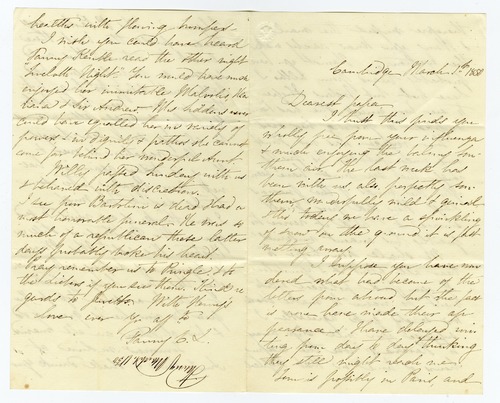 Cambridge March 1st 1850
Dearest papa,
I trust this finds you
wholly free from your influenza
& much enjoying the balmy Sou-
thern air. The last week has
been with us also perfectly Sou-
thern, wonderfully mild & genial
tho' today we have a sprinkling
of snow on the ground it is fast
melting away.
I suppose you have won-
dered what had become of the
letters from abroad but the fact
is none have made their ap-
pearance & I have delayed wri-
ting from day to day thinking
they still might reach me.
Tom is probably in Paris, and
healths with flowing bumpers.
I wish you could have heard
Fanny Kemble read the other night
Twelfth Night. You would have much
enjoyed her inimitable Malvolio, Ma-
ria & Sir Andrew. Mrs Siddons never
could have equalled her in variety of
power & in dignity & pathos she cannot
come far behind her wonderful Aunt.
Willy passed Sunday with us
& behaved with discretion.
I see poor is dead & had a
most honorable funeral. He was so
much of a republican these latter
days probably broke his heart
Pray remember us to Pringle & to
the sisters if you see them. Kind re-
gards to With
love ever yr aff
Fanny E. L.
Fanny March 1. 1850